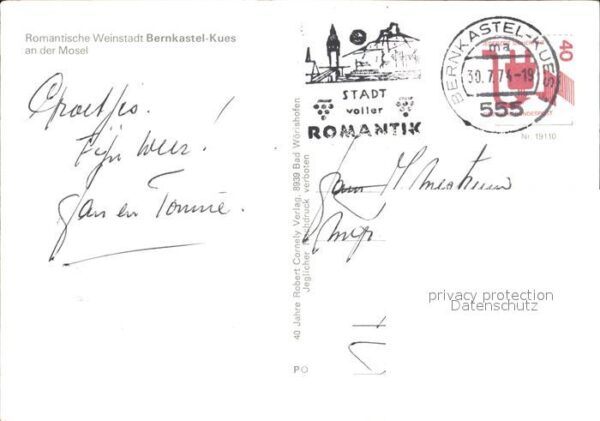 Romantische Weinstadt Bernkastel-Kues
an der Mosel
Groetjes!
Fijn weer!
Jan en Tonnie.
STADT
voller
ROMANTIK
BERNKASTEL-KUES
ma
30.7.74-19
555
40
Nr. 19110
40 Jahre Robert Cornely Verlag, 8939 Bad Wörishofen
Jeglicher Nachdruck verboten
PO
privacy protection
Datenschutz